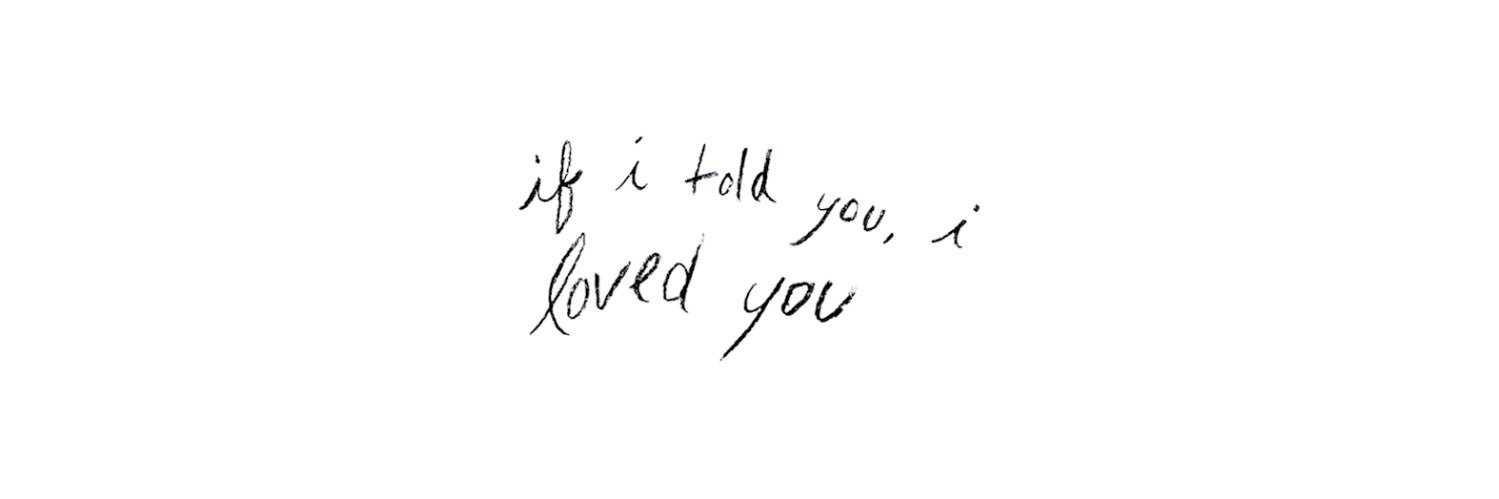 if i told you, i
loved you